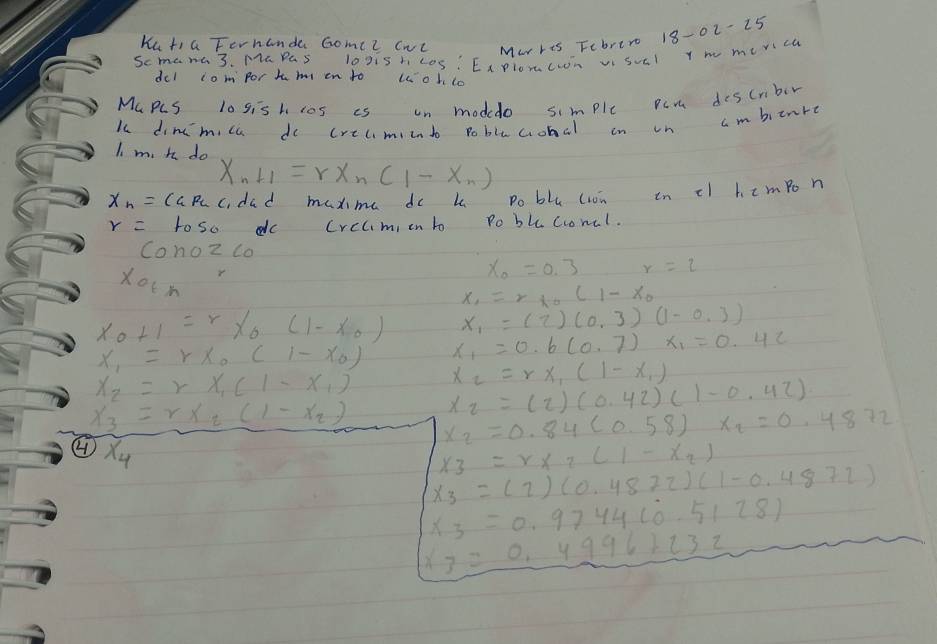 Katia Fernanda Gomez Cruz Martes Febrero 18-02-25
Semana 3. Mapas logisticos: Exploración visual y numerica
del comportamiento caótico
Mapas logísticos es un modelo simple para describir
la dinámica de crecimiento poblacional en un ambiente
limitado
Xn+1 = rXn(1-Xn)
Xn = Capacidad maxima de la población en el tiempo n
r = tosa de crecimiento poblacional.
Conozco
X0, n r
X0+1 = r X0 (1-X0)
X1 = r X0 (1-X0)
X2 = r X1 (1-X1)
X3 = r X2 (1-X2)
④ X4
X0 = 0.3 r = 2
X1 = r X0 (1-X0
X1 = (2)(0.3)(1-0.3)
X1 = 0.6(0.7) X1 = 0.42
X2 = r X1 (1-X1)
X2 = (2)(0.42)(1-0.42)
X2 = 0.84(0.58) X2 = 0.4872
X3 = r X2 (1-X2)
X3 = (2)(0.4872)(1-0.4872)
X3 = 0.9744(0.5128)
X3 = 0.49967232